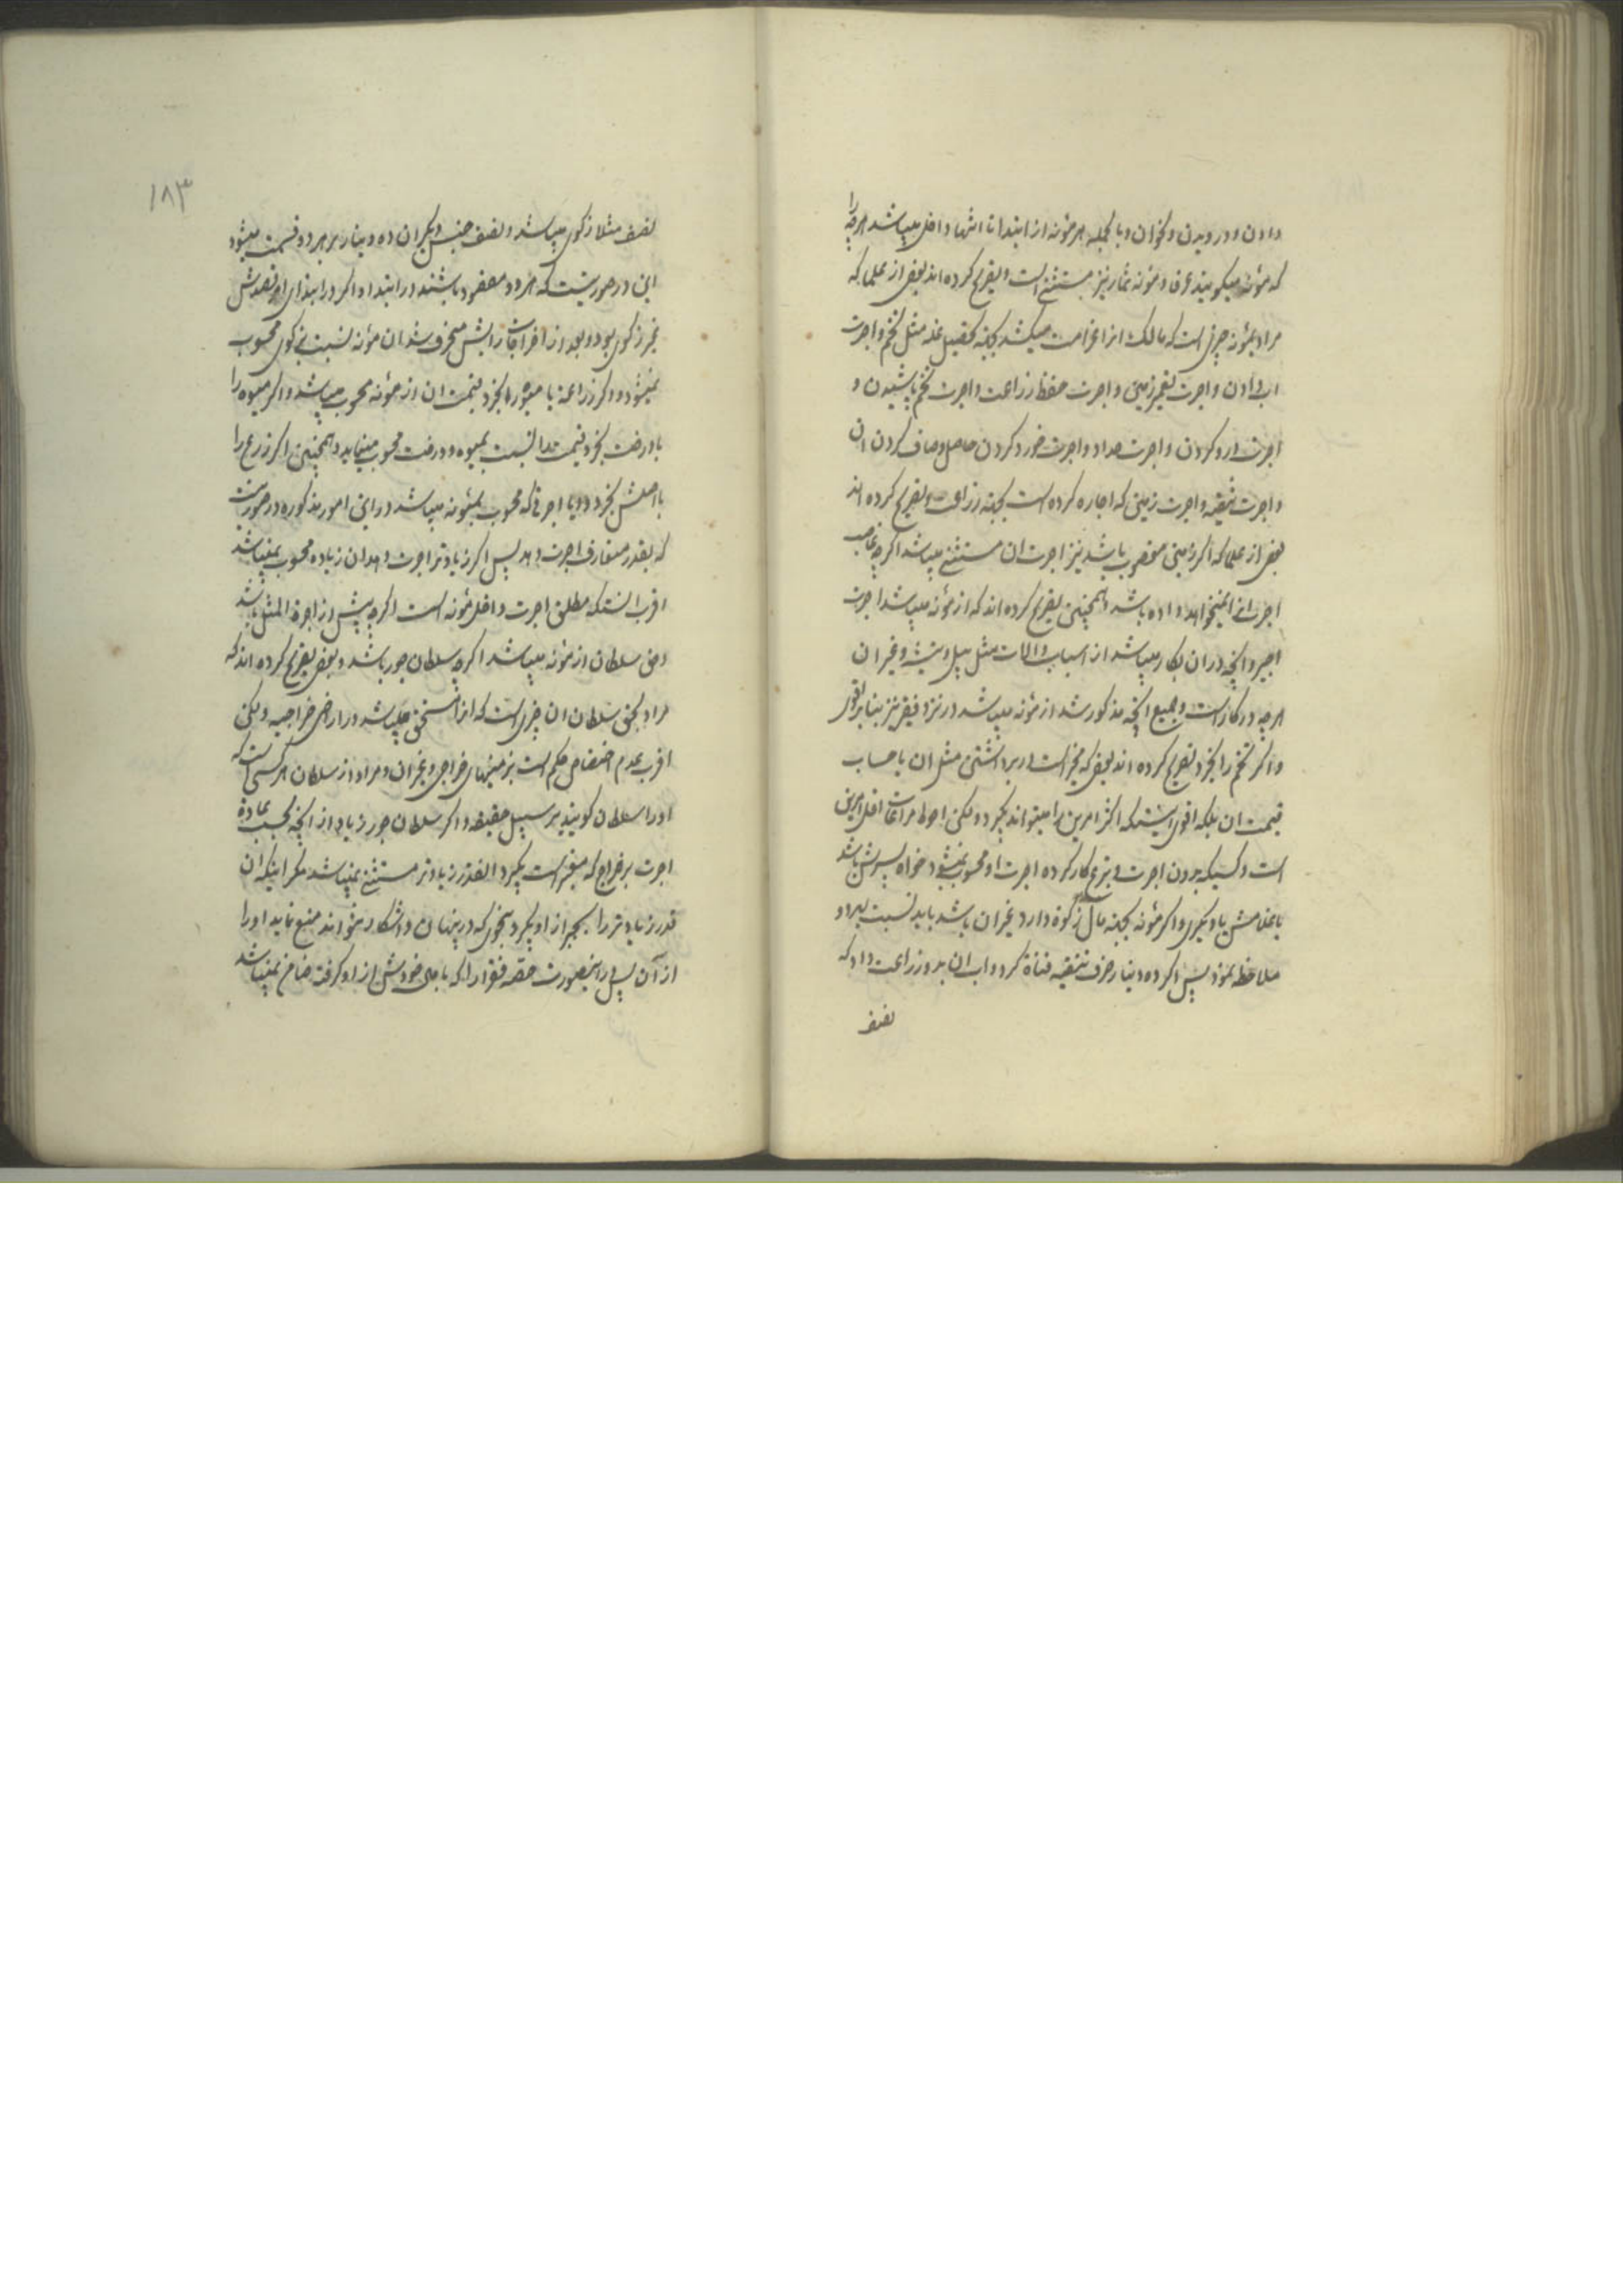 دادن و درویدن و نحو ان و بالجمله هر مؤنه از ابتدا تا انتها داخل میباشد هرچه را
که مؤنه میکویند عرفا و مؤنه ثمار نیز مستثنی است و تصریح کرده اند بعض از علما که
مراد بمؤنه چیزی است که مالک انرا غرامت میکشد بجهة تحصیل غله مثل تخم و اجرت
اب دادن و اجرت تعمیر زمین و اجرت حفظ زراعت و اجرت تخم پاشیدن و
اجرت درو کردن و اجرت حداد و اجرت خورد کردن حاصل و صاف کردن ان
و اجرت تنقیه و اجرت زمینی که اجاره کرده است بجهة زراعت و تصریح کرده اند
بعض از علما که اگر زمین مغصوب باشد نیز اجرت ان مستثنی میباشد اگرچه غاصب
اجرت انرا نمیخواهد داده باشد و همچنین تصریح کرده اند که از مؤنه میباشد اجرت
اجیر و انچه در ان بکار میباشد از اسباب و الات مثل بیل و تیشه و غیر ان
هرچه در کار است و جمیع انچه مذکور شد از مؤنه میباشد در نزد فقیر نیز بنا بر اقوی
و اگر تخم را بخرد تصریح کرده اند بعض که مخیر است در برداشتن مثل ان یا حساب
قیمت ان بلکه اقوی اینستکه اکثر امرین را میتواند بگیرد و لکن احوط مراعات اقل امرین
است و کسیکه بدون اجرت و بتبرع کار کرده اجرت او محسوب نمیشود خواه پسرش باشد
یا غلامش یا دیگری و اگر مؤنه بجهة مال زکوة دار و غیر ان باشد باید نسبت بهر دو
ملاحظه نمود پس اگر ده دینار صرف تنقیه قناة کرد و اب ان بدو زراعت داد که
نصف
۱۸۳
نصف مثلا زکوی میباشد و نصف جنس دیگر ان ده دینار بر هر دو قسمت میشود
این در صورتیست که هر دو مقصود باشند در ابتدا و اگر در ابتدای امر قصدش
غیر زکوی بود و بعد از اخراجات رایش منحرف شد ان مؤنه نسبت بزکوی محسوب
نمیشود و اگر زراعة یا میوه را بخرد قیمت ان از مؤنه محسوب میباشد و اگر میوه را
با درخت بخرد قیمت را نسبت بمیوه و درخت محسوب مینماید و همچنین اگر زرع را
با اصلش بخرد و ایا اجرتی که محسوب بمؤنه میباشد در این امور مذکوره در صورتیست
که بقدر متعارف اجرت دهد پس اگر زیادتر اجرت دهد ان زیاده محسوب نمیباشد
اقرب انستکه مطلق اجرت داخل مؤنه است اگرچه بیش از اجرة المثل باشد
و حق سلطان از مؤنه میباشد اگرچه سلطان جور باشد و بعض تصریح کرده اند که
مراد بحق سلطان ان چیزی است که انرا مستحق میباشد در اراضی خراجیه و لکن
اقرب عدم اختصاص حکم است بزمینهای خراجی و غیر ان و مراد از سلطان هر کسی است که
او را سلطان کویند بر سبیل حقیقة و اگر سلطان جور زیاد از انچه بحسب عادة
اجرت بر خراج که مقرر است بگیرد انقدر زیادتر مستثنی نمیباشد مگر اینکه ان
قدر زیادتر را بجبر از او بگیرد بنحوی که در پنهان و اشکار نتواند منع نماید او را
از آن پس در اینصورت حصه فقرا را که با مال خودش از او گرفت ضامن نمیباشد